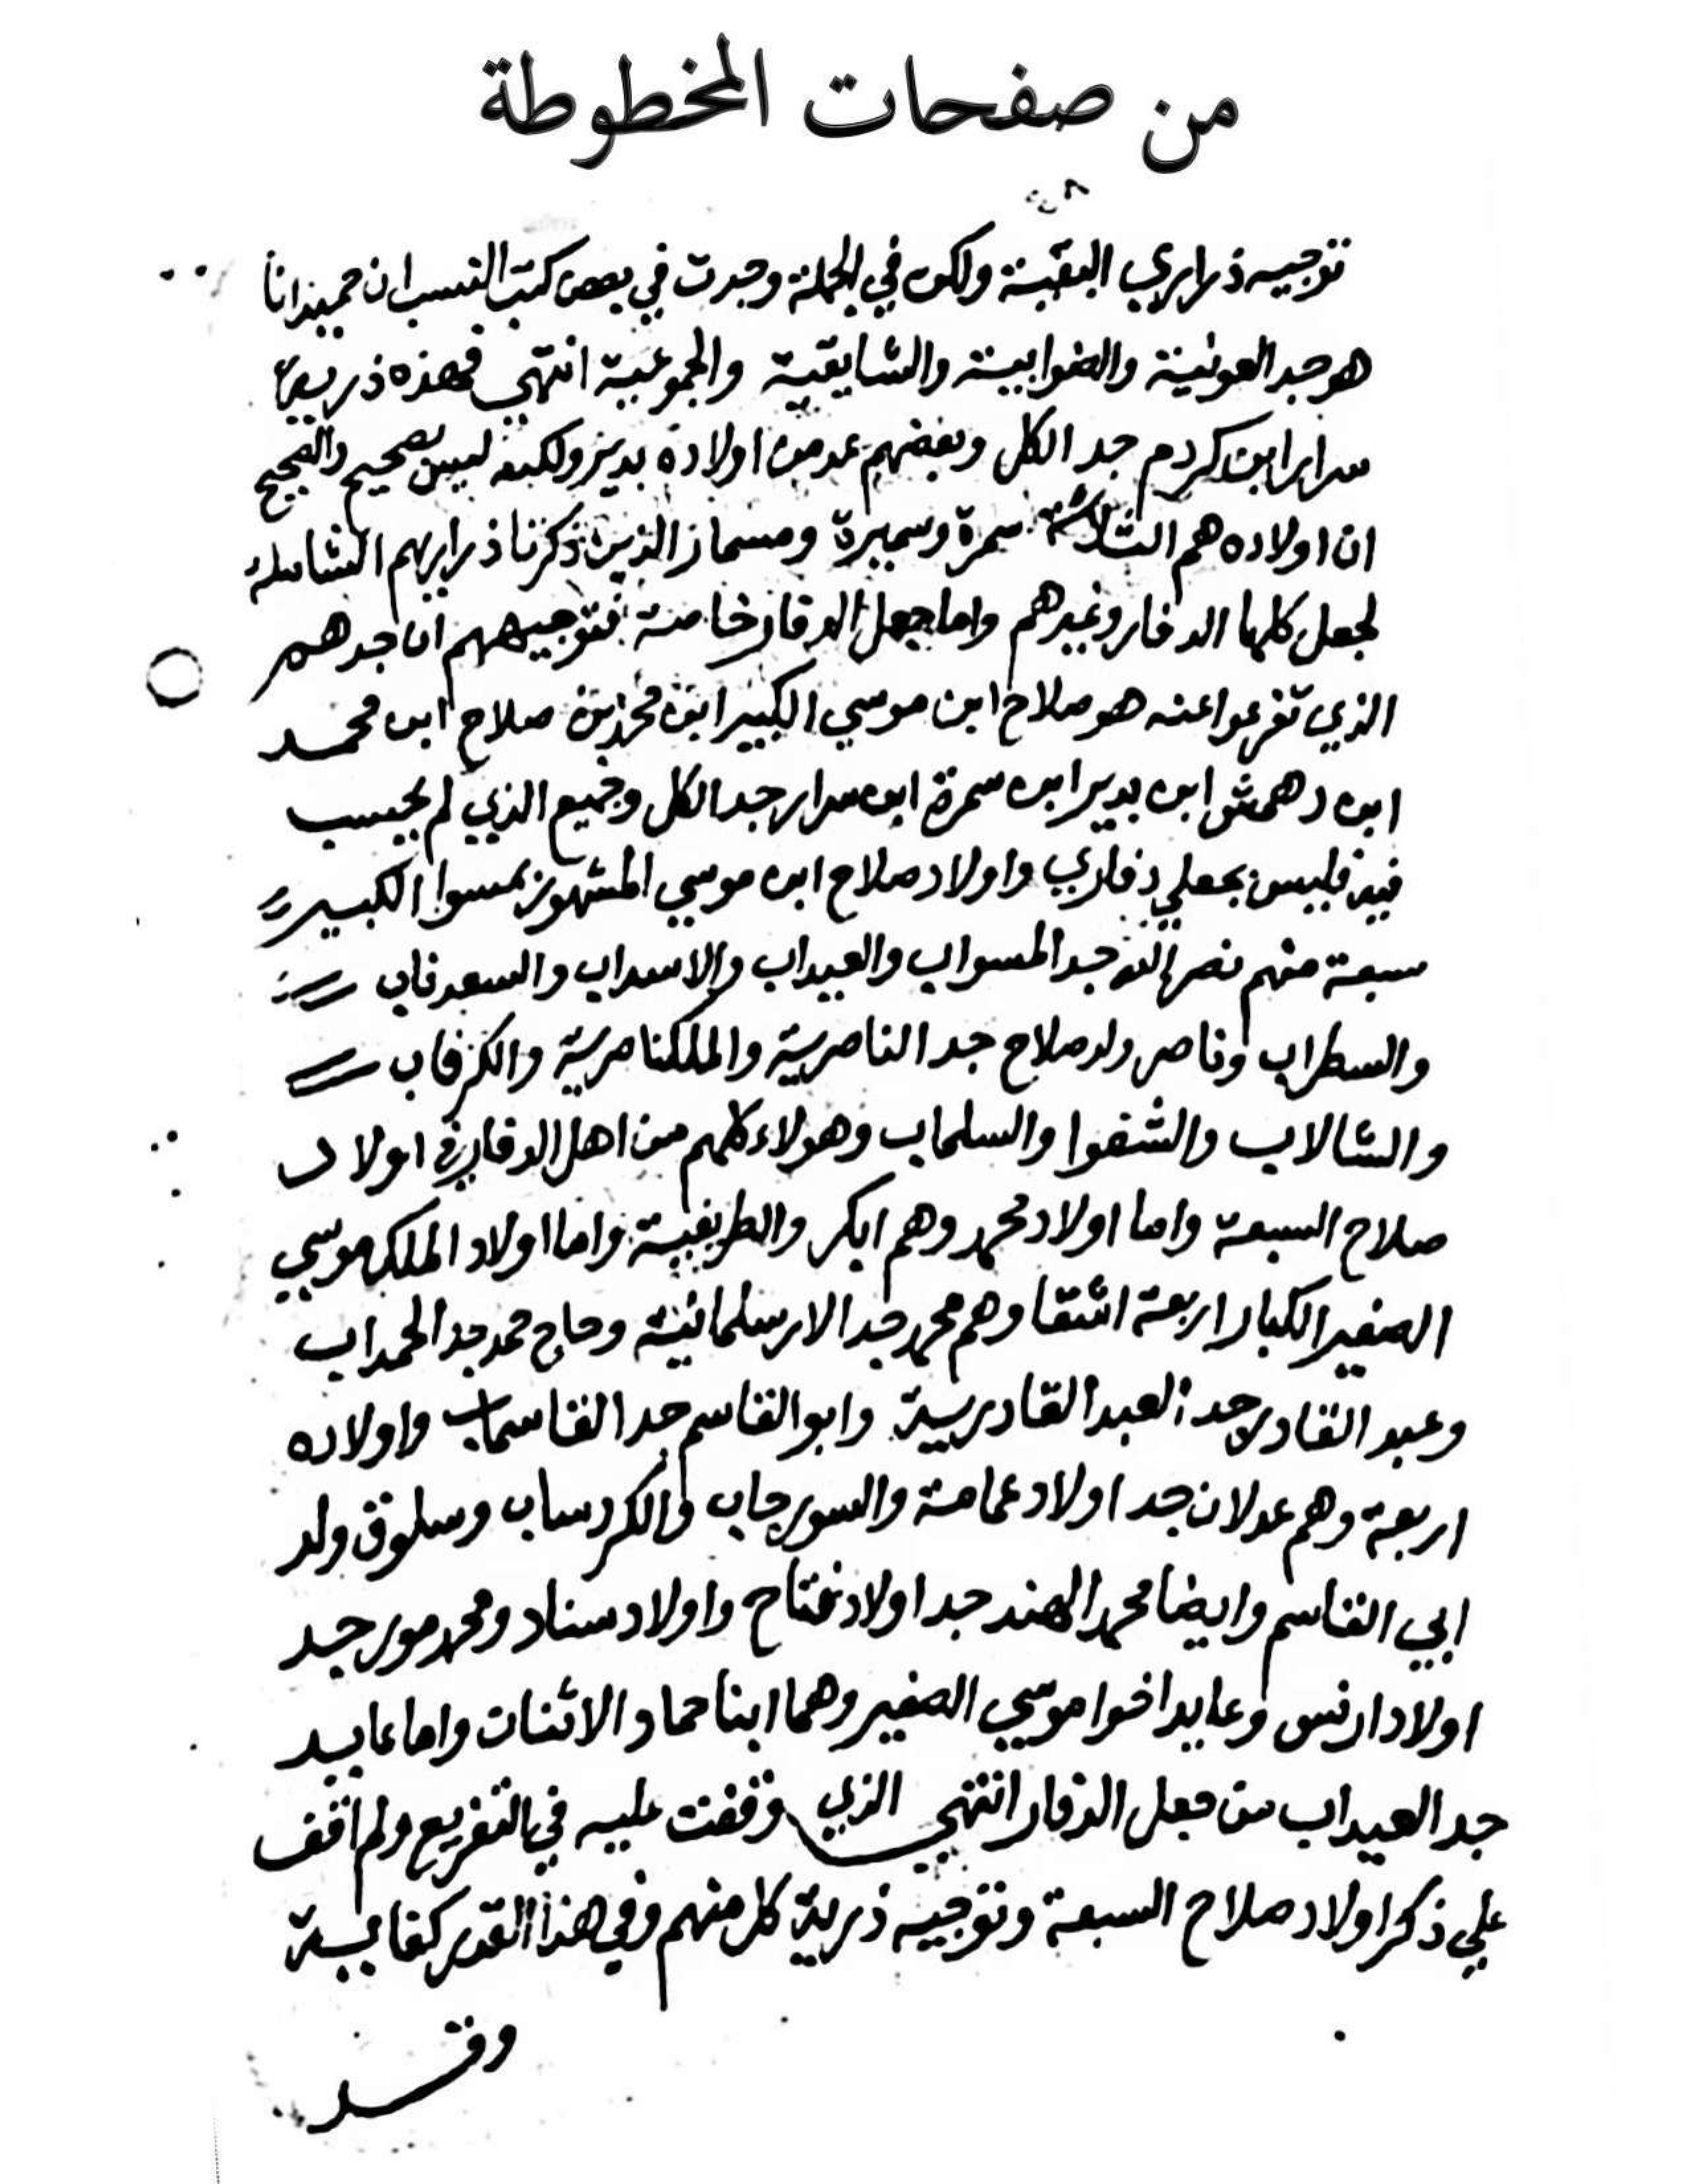 من صفحات المخطوطة
توجيه ذراري البقية ولكن في الجملة وجدت في بعض كتب النسب ان حميدانا
هو جد العونية والضوابية والشايقية والجموعية انتهي فهذه ذرية
سرار ابن كردم جد الكل وبعضهم عد من اولاده بدير ولكنه ليس بصحيح والصحيح
ان اولاده هم الثلاثة سمرة وسميرة ومسمار الذين ذكرنا ذراريهم الشاملة
لجعل كلها الدفار وغيرهم واما جعل الدفار خاصة فتوجيههم ان جدهم
الذي تفرعوا عنه هو صلاح ابن موسي الكبير ابن محمد ابن صلاح ابن محمد
ابن دهمش ابن بدير ابن سمرة ابن سرار جد الكل وجميع الذي لم يحسب
فيه فليس بجعلي دفاري واولاد صلاح ابن موسي المشهور بمسوا الكبير
سبعة منهم نصر الله جد المسواب والعيداب والاسداب والسعدناب
والسطراب وناصر ولد صلاح جد الناصرية والملكناصرية والكرفاب
والشالاب والشقوا والسلماب وهولاء كلهم من اهل الدفار في اولاد
صلاح السبعة واما اولاد محمد وهم ابكر والطريفية واما اولاد الملك موسي
الصغير الكبار اربعة اشقا وهم محمد جد الارسلمانية وحاج محمد جد الحمداب
وعبد القادر جد العبد القادرية وابو القاسم جد القاسماب واولاده
اربعة وهم عدلان جد اولاد عمامة والسورجاب والكردساب وسلوق ولد
ابي القاسم وايضا محمد الهند جد اولاد نمتاح واولاد سناد ومحمد مور جد
اولاد ادنس وعايد اخوا موسي الصغير وهما ابنا حماد الاثنات واما عايد
جد العيداب من جعل الدفار انتهي الذي وقفت عليه في التفريع ولم اقف
علي ذكر اولاد صلاح السبعة وتوجيه ذرية كل منهم وفي هذا القدر كفاية
وقد